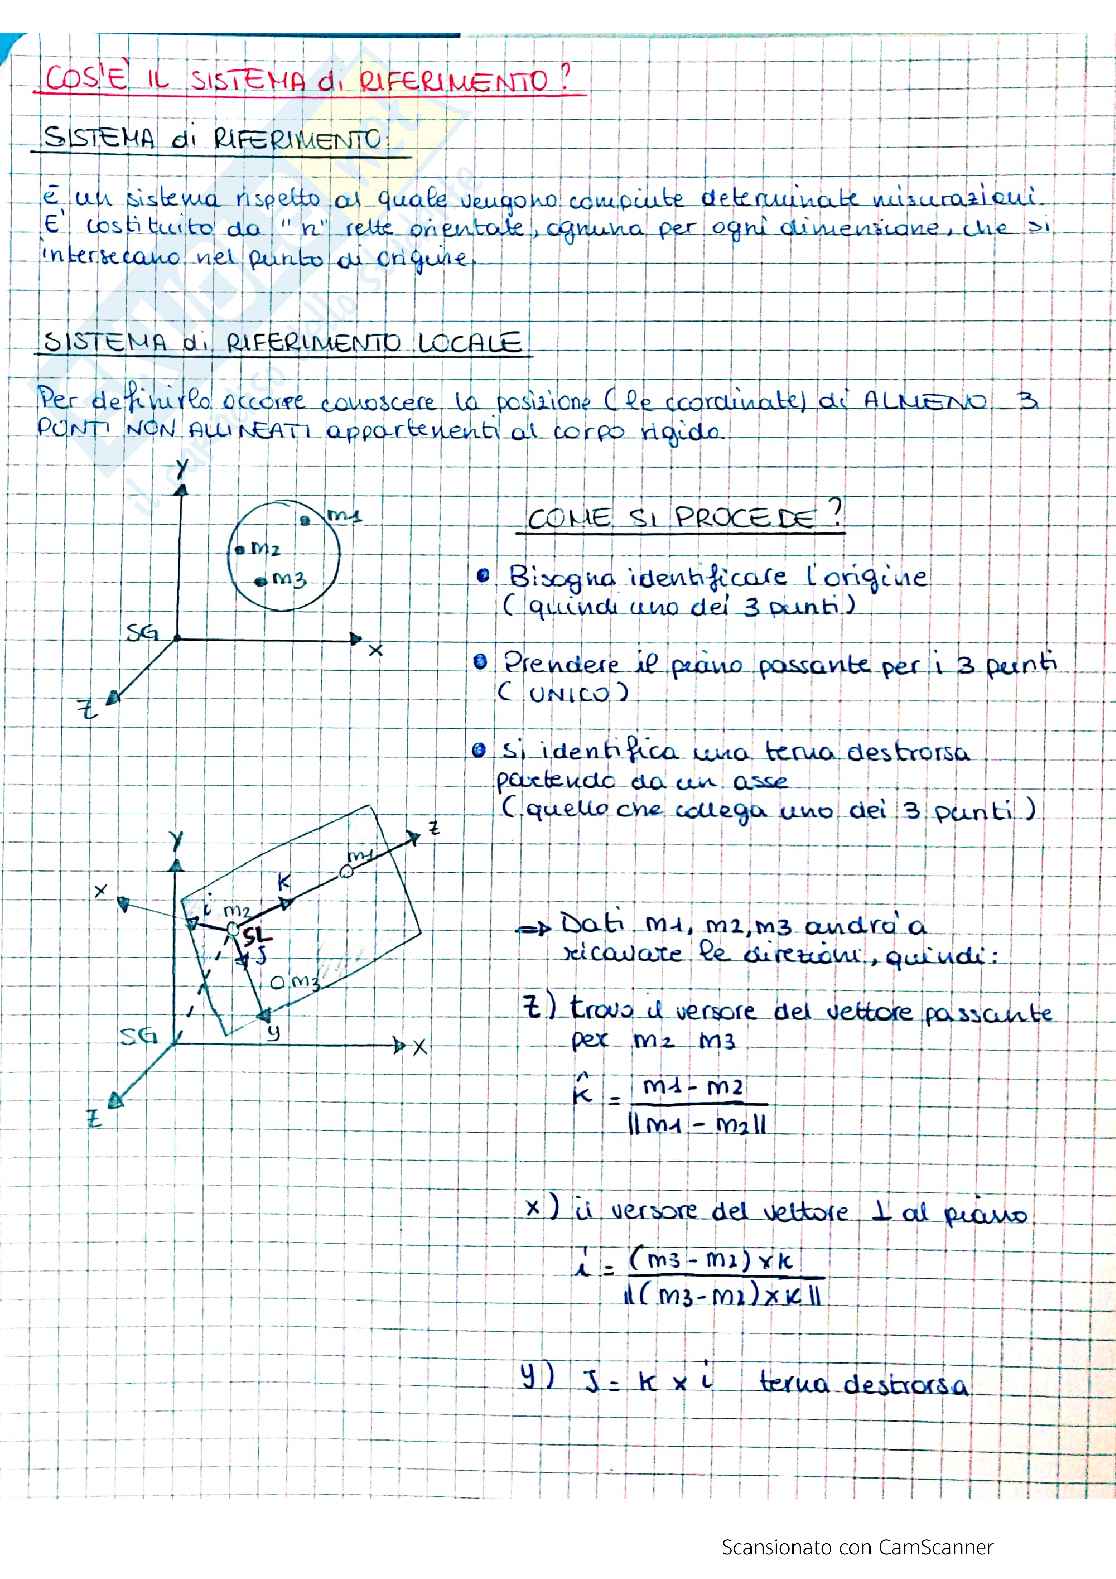 COS'È IL SISTEMA di RIFERIMENTO?
SISTEMA di RIFERIMENTO:
È un sistema rispetto al quale vengono compiute determinate misurazioni.
E' costituito da "n" rette orientate, ognuna per ogni dimensione, che si
intersecano nel punto di origine.
SISTEMA di RIFERIMENTO LOCALE
Per definirlo occorre conoscere la posizione (le coordinate) di ALMENO 3
PUNTI NON ALLINEATI appartenenti al corpo rigido.
Y
m1
m2
m3
SG
X
Z
COME SI PROCEDE?
• Bisogna identificare l'origine
(quindi uno dei 3 punti)
• Prendere il piano passante per i 3 punti
(UNICO)
• si identifica una terna destrorsa
partendo da un asse
(quello che collega uno dei 3 punti)
Y
X
i
m2
K
m1
Z
SL
J
m3
y
SG
X
Z
=> Dati m1, m2, m3 andrò a
ricavare le direzioni, quindi:
Z) trovo il versore del vettore passante
per m2 m3
k̂ = m1 - m2
||m1 - m2||
X) il versore del vettore ⊥ al piano
i = (m3 - m2) x k
||(m3 - m2) x k||
y) J = K x i terna destrorsa
Scansionato con CamScanner